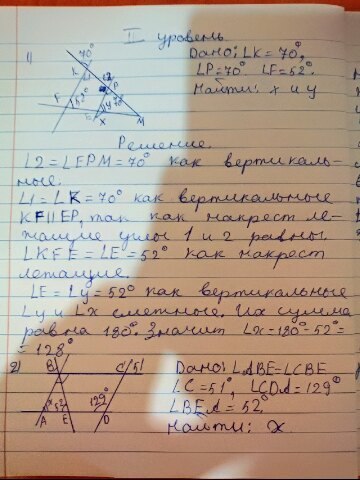 II уровень
1)
Дано: ∠K = 70°,
∠P=70° ∠F=52°
Найти: x и y
70°
K
1
2
P
F
52°
y
70°
E
x
M
Решение
∠2=∠EPM=70° как вертикаль-
ные.
∠1=∠K=70° как вертикальные
KF||EP, так как накрест ле-
жащие углы 1 и 2 равны
∠KFE=∠E=52° как накрест
лежащие.
∠E=∠y=52° как вертикальные
∠y и ∠x смежные. Их сумма
равна 180°. Значит ∠x=180-52°=
= 128°
2)
B
C
51°
Дано: ∠ABE=∠CBE
∠C=51°, ∠CDA=129°
∠BEA=52°
Найти: x.
x
52
129°
A
E
D